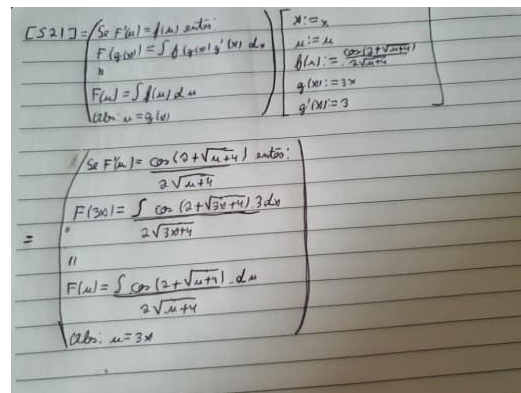 [S2I] = (Se F'(u) = f(u) então:
F(g(x)) = ∫ f(g(x)) g'(x) dx
"
F(u) = ∫ f(u) du
Obs: u = g(x))
[x := x
u := u
f(u) := cos(2+√u+4) / 2√u+4
g(x) := 3x
g'(x) := 3]
= (Se F'(u) = cos(2+√u+4) / 2√u+4 então:
F(3x) = ∫ cos(2+√3x+4) / 2√3x+4 . 3 dx
"
F(u) = ∫ cos(2+√u+4) / 2√u+4 . du
Obs: u = 3x)